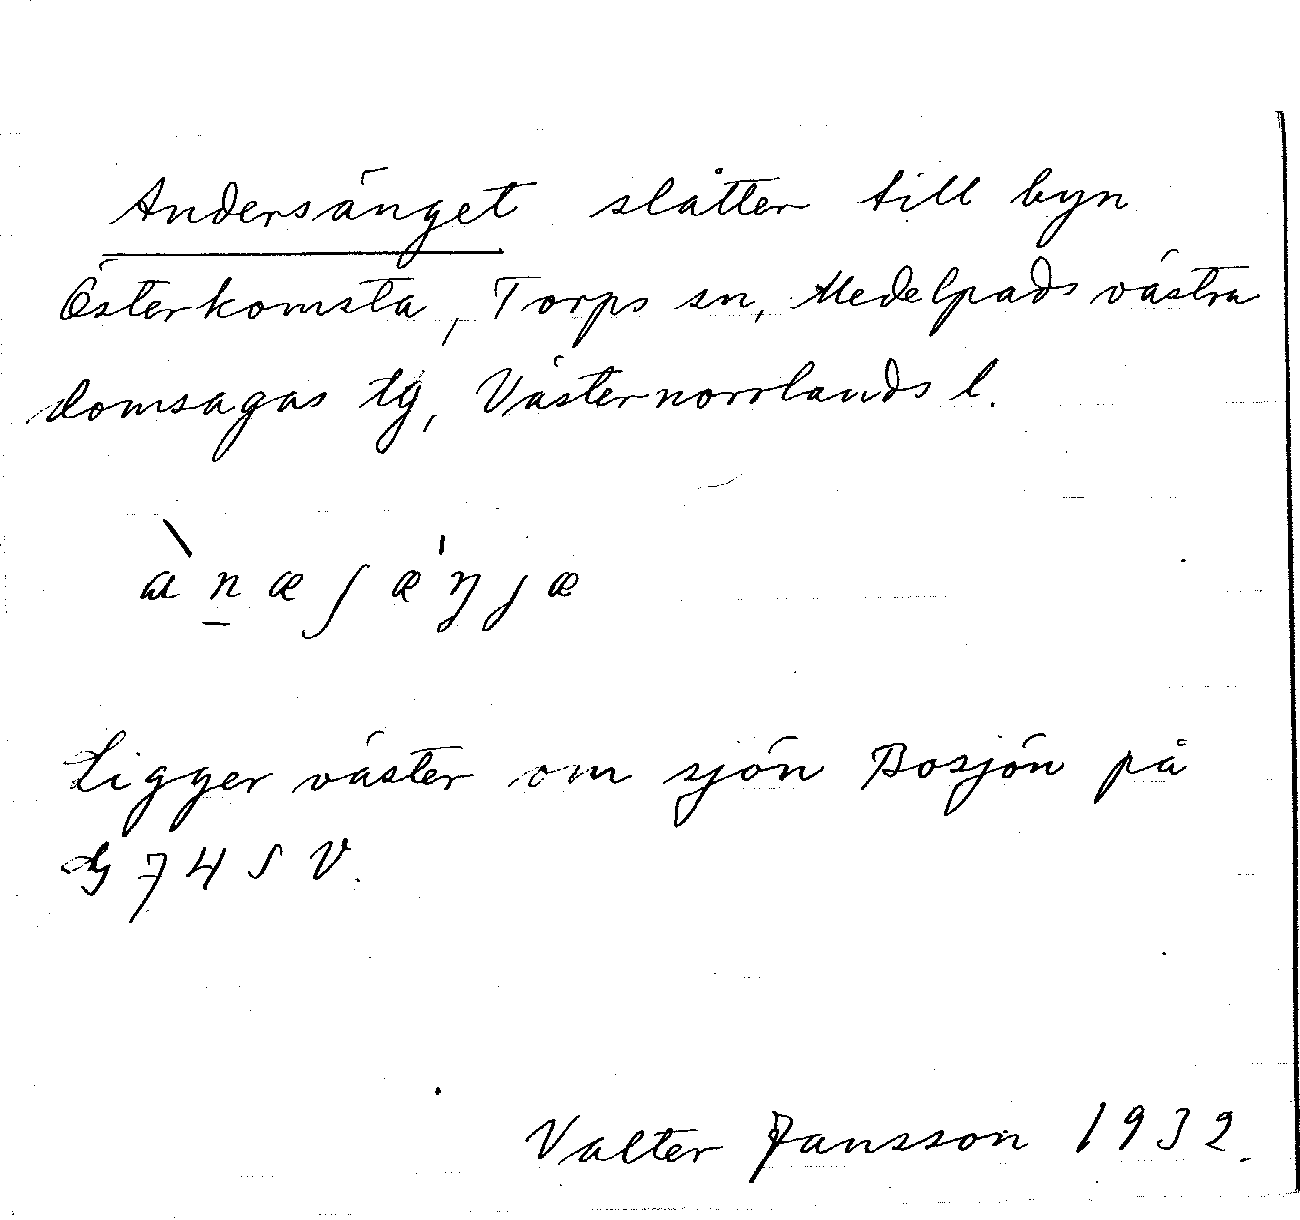 Andersänget slåtter till byn
Österkomsta, Torps sn, Medelpads västra
domsagas tg, Västernorrlands l.
ànæſæ'ŋjæ
Ligger väster om sjön Bosjön på
74 SV.
Valter Jansson 1932.